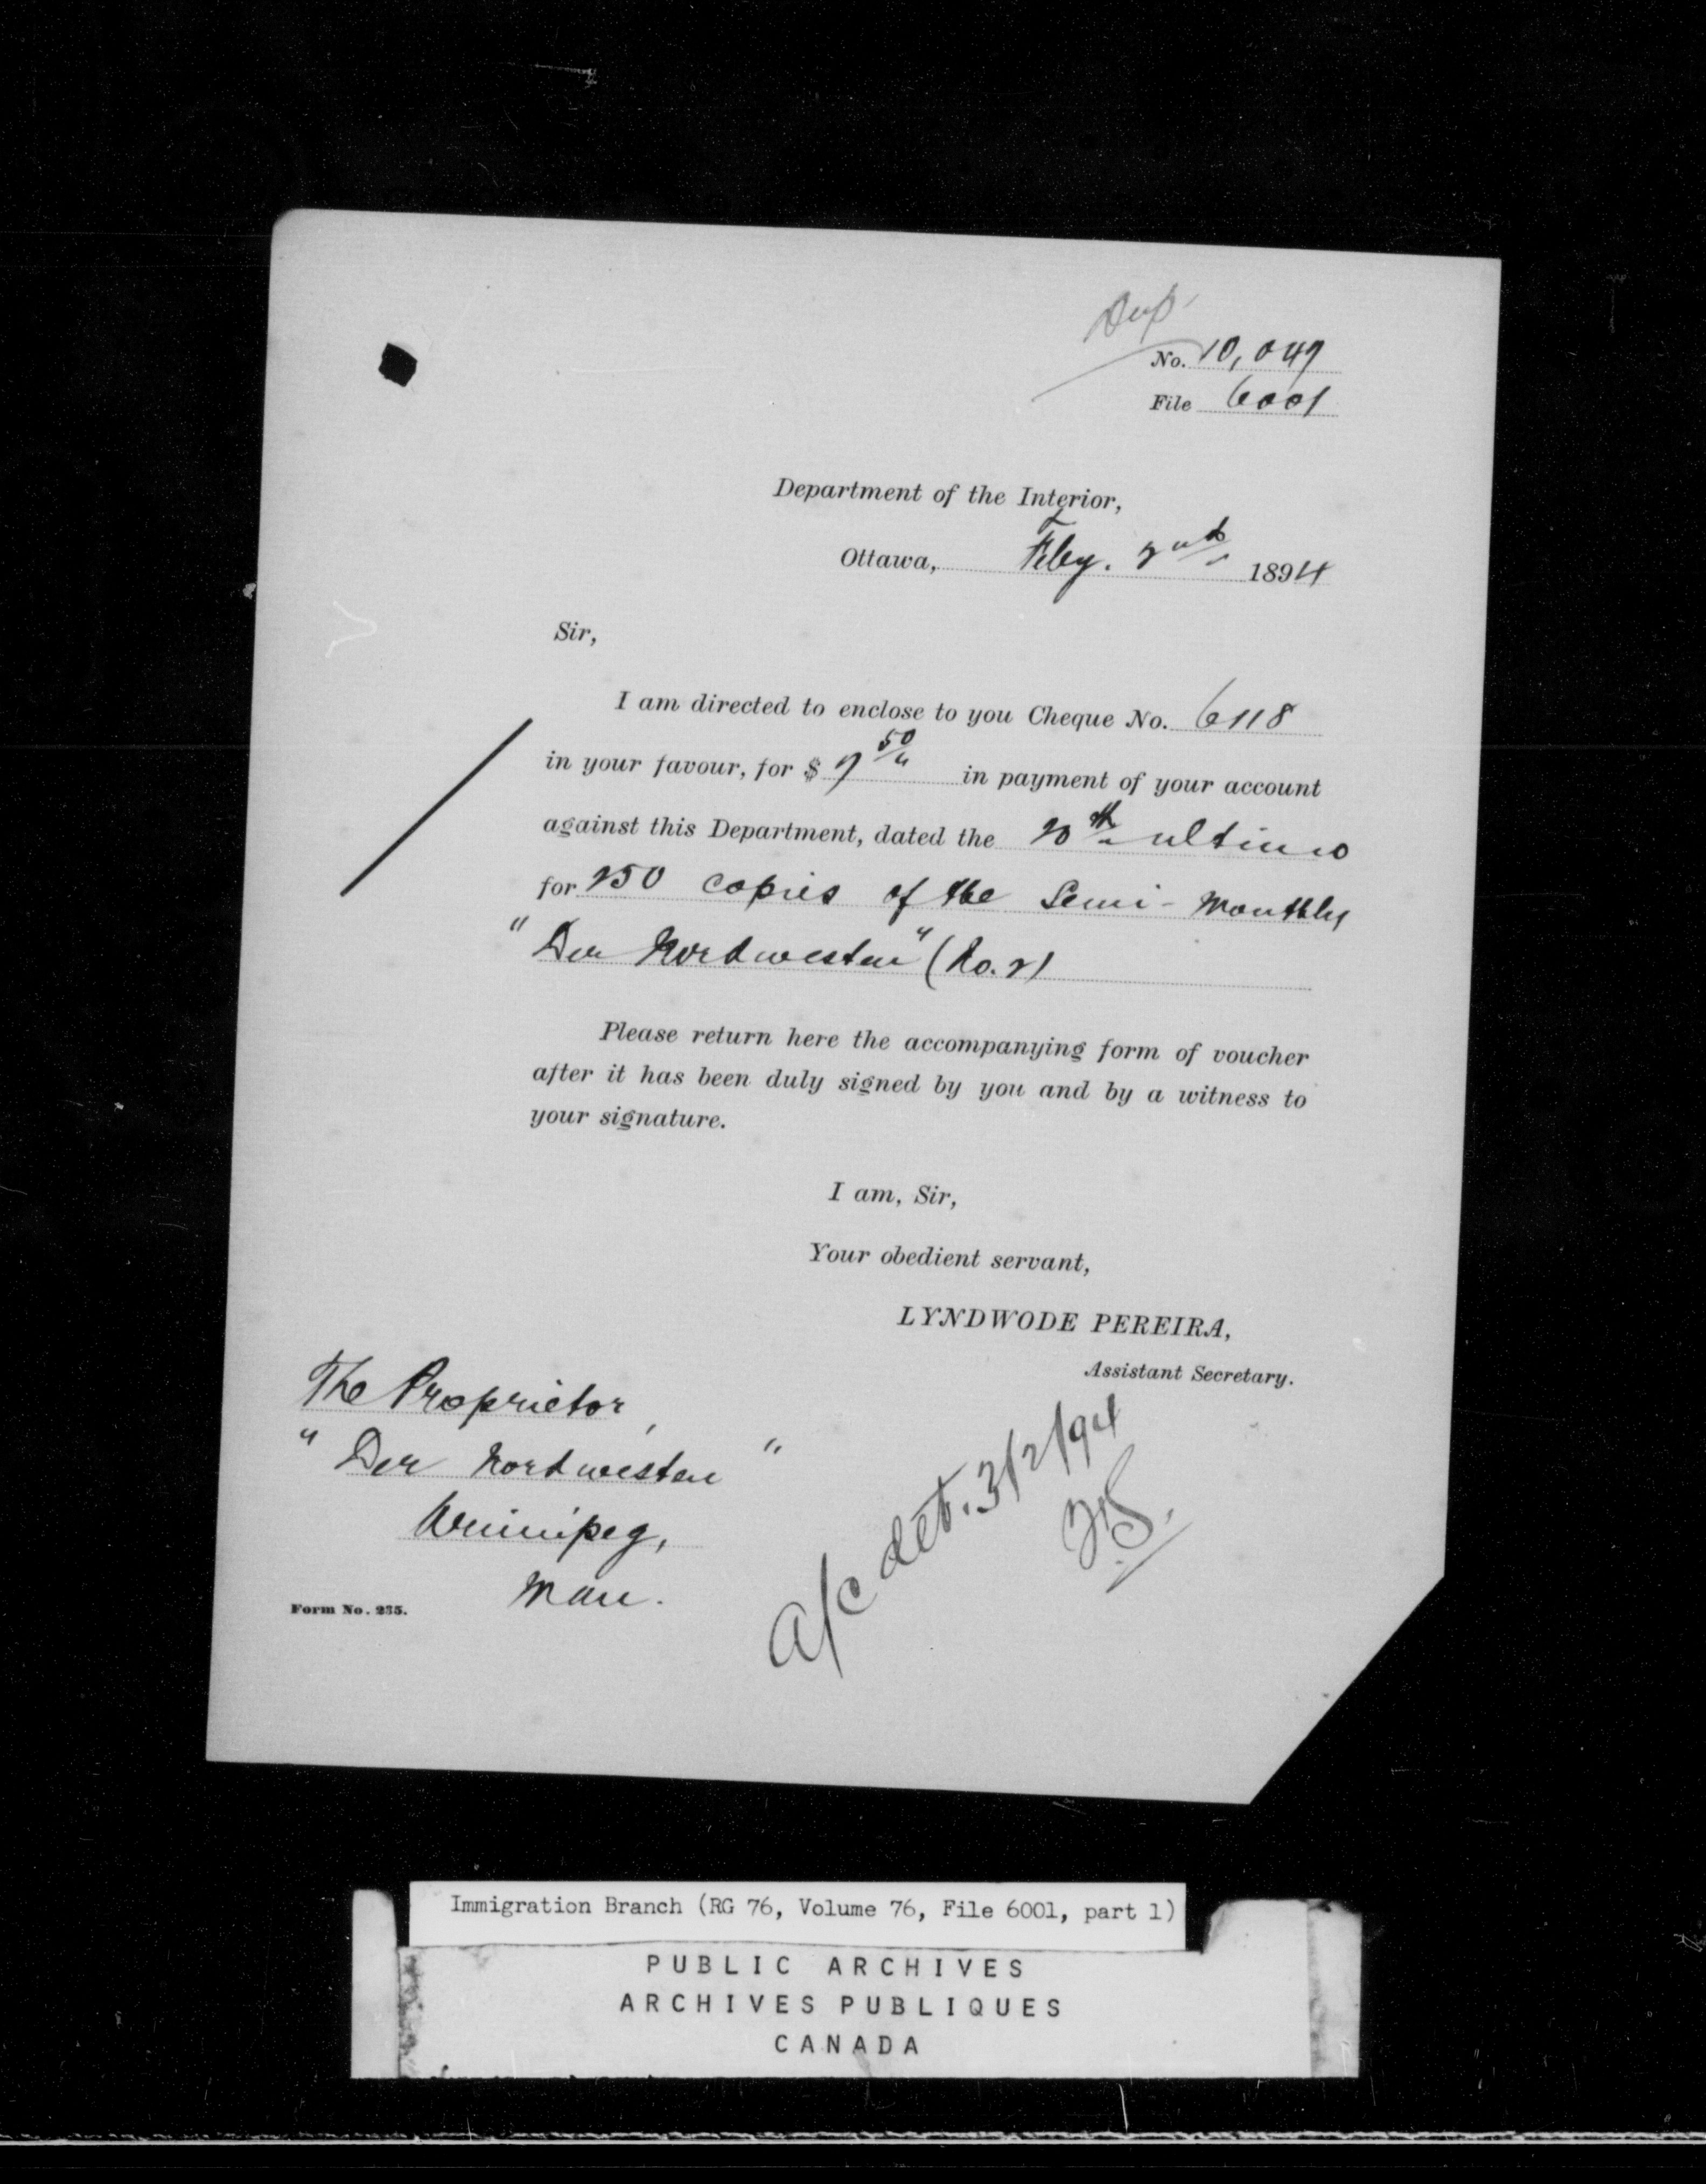 Dup.
No. 10,049
File 6001
Department of the Interior,
Ottawa, Feby. 2nd 1894
Sir,
I am directed to enclose to you Cheque No. 6118
in your favour, for $ 7 50/ in payment of your account
against this Department, dated the 20th ultimo
for 250 copies of the Semi-Monthly
"Der Nordwesten" (No. 2)
Please return here the accompanying form of voucher
after it has been duly signed by you and by a witness to
your signature.
I am, Sir,
Your obedient servant,
LYNDWODE PEREIRA,
Assistant Secretary.
The Proprietor,
"Der Nordwesten"
Winnipeg,
Man.
a/c det. 3/2/94
Form No. 235.
Immigration Branch (RG 76, Volume 76, File 6001, part 1)
PUBLIC ARCHIVES
ARCHIVES PUBLIQUES
CANADA